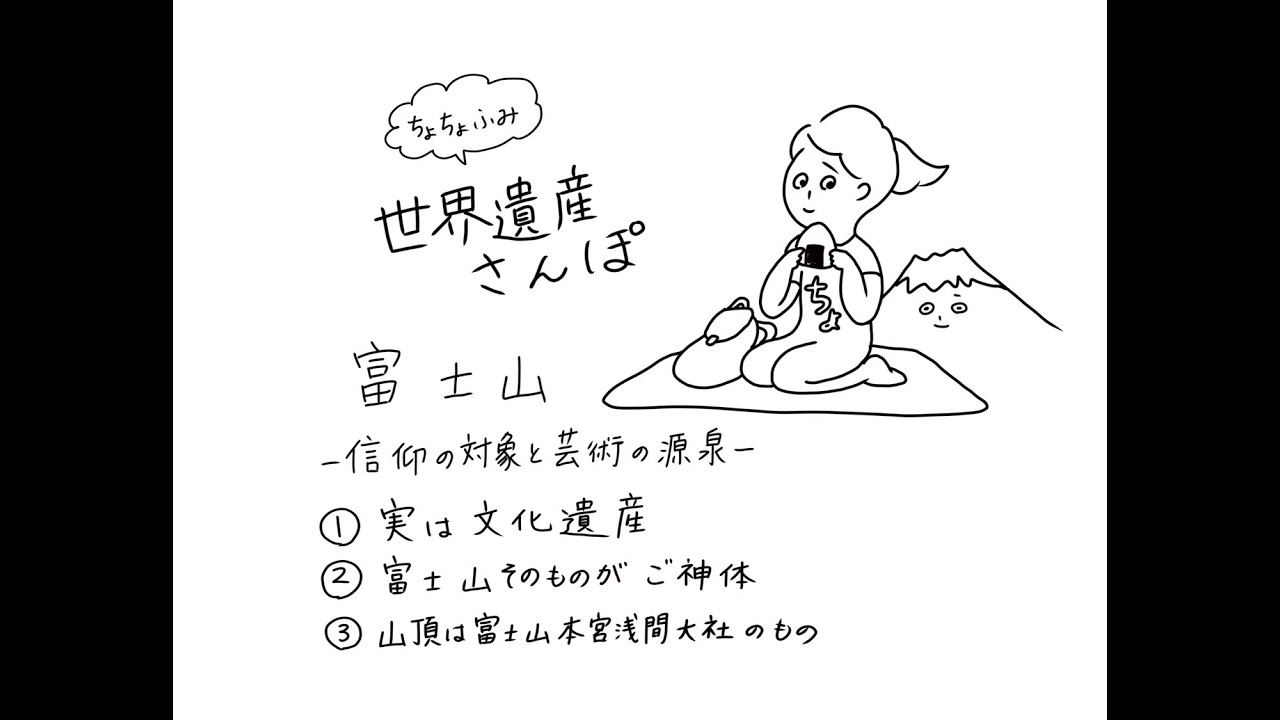 ちょちょふみ
世界遺産
さんぽ
ちょ
富士山
－信仰の対象と芸術の源泉－
① 実は文化遺産
② 富士山そのものがご神体
③ 山頂は富士山本宮浅間大社のもの